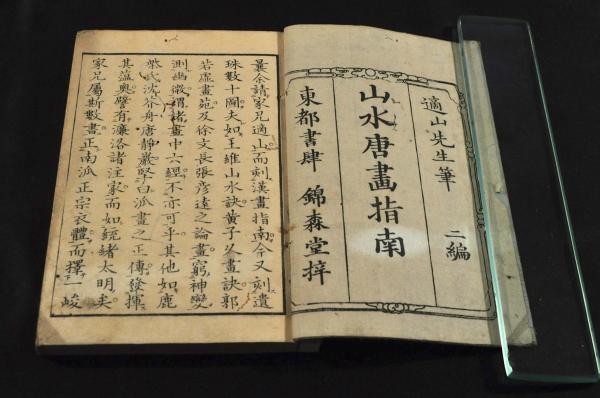 適山先生筆 二編
山水唐畫指南
東都書肆 錦森堂梓
曩余請家兄適山而刻漢畫指南今又刻遺
珠數十圖夫如王維山水訣黄子久畫訣郭
若虚畫苑及徐文長張彦遠之論畫窮神變
測幽微謂諸畫中六經不亦可乎其他如鹿
柴武沈芥舟唐靜巖堅白派畫之正傳發揮
其蘊奥譬有濂洛諸注家而如統緒太明矣
家兄屬斯數書正南派正宗衣體而擇一峻